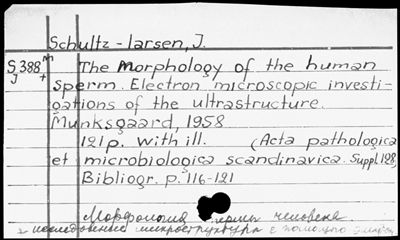 Schultz-larsen, J.
S 388 m The Morphology of the human
J + sperm. Electron microscopic investi-
gations of the ultrastructure.
Munksgaard, 1958
121p. with ill. (Acta pathologica
et microbiologica scandinavica. Suppl 128)
Bibliogr. p. 116-121
Морфология спермы человека.
исследование микроструктуры с помощью